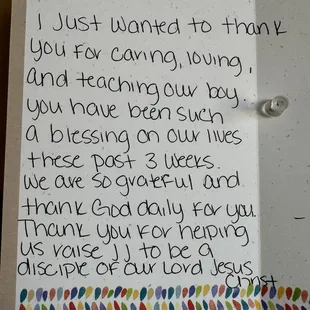 I Just wanted to thank
you for caring, loving,
and teaching our boy.
you have been such
a blessing on our lives
these past 3 weeks.
we are so grateful and
thank God daily for you.
Thank you for helping
us raise JJ to be a
disciple of our Lord Jesus
Christ